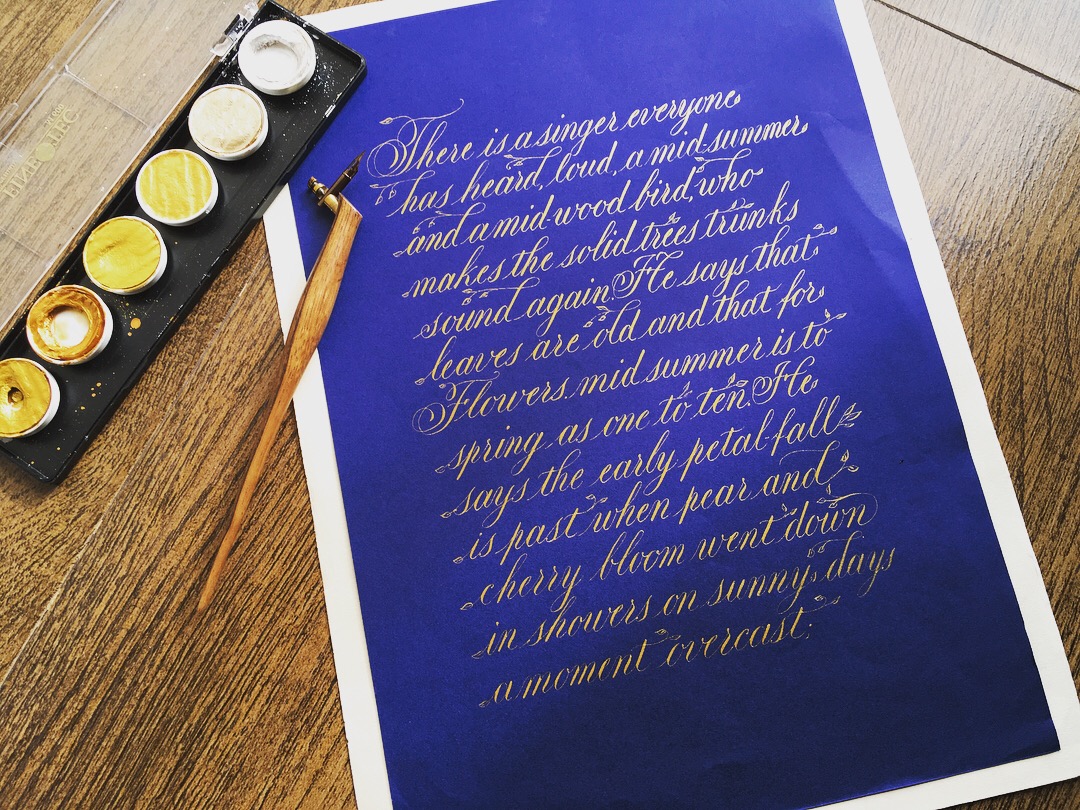 There is a singer everyone
has heard, loud, a mid-summer
and a mid-wood bird, who
makes the solid trees trunks
sound again. He says that
leaves are old and that for
Flowers. mid summer is to
spring as one to ten. He
says the early petal-fall
is past when pear and
cherry bloom went down
in showers on sunny, days
a moment overcast;
FINETEC